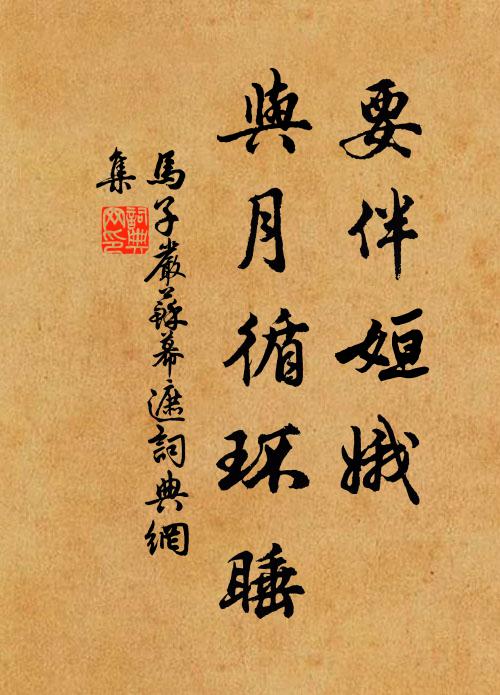 要伴姮娥
與月循环睡
馬子嚴蘇幕遮詞典網
集
詞典
网印